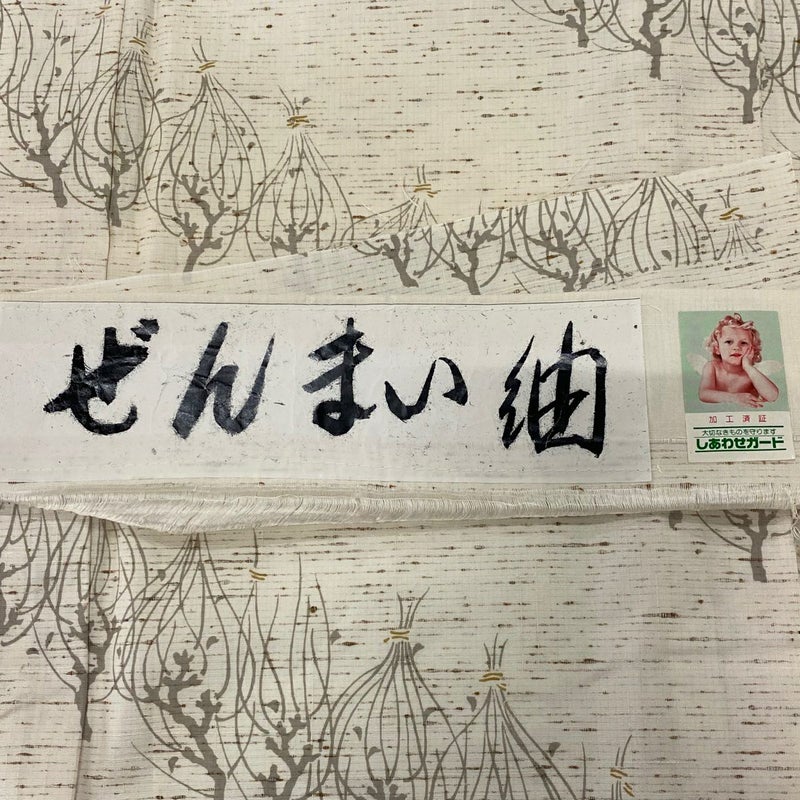 ぜんまい紬
加工済証
大切なきものを守ります
しあわせガード